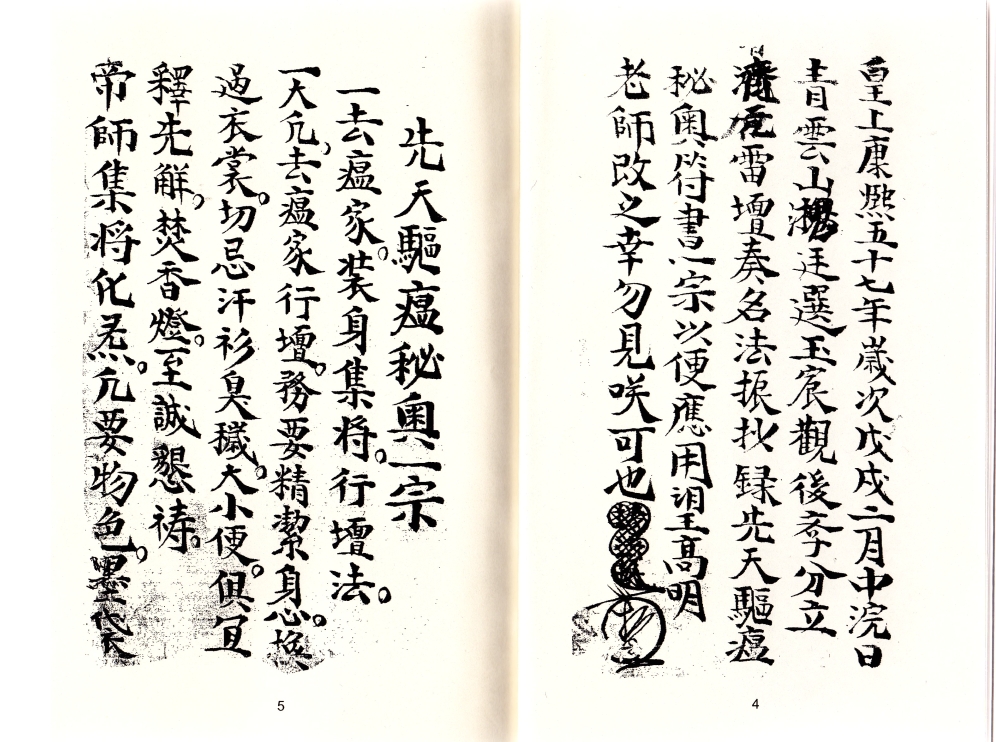 皇上康熙五十七年歲次戊戌二月中浣日
青雲山廷選玉宸觀後李分立
雷壇奏名法振抄録先天驅瘟
秘奧符書一宗以便應用泪王高明
老師改之幸勿見咲可也
4
先天驅瘟秘奧一宗
一去瘟家。装身集将。行壇法。
一大凢、去瘟家行壇。務要精潔身心。換
過衣裳。切忌汗衫臭穢。大小便。俱宜
釋先觧。焚香燈。至誠懇禱。
帝師集将化炁。凢要物色。墨袋
5